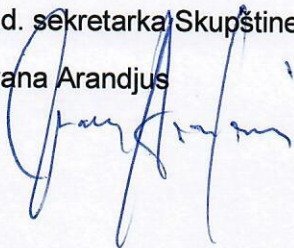 d. sekretarka Skupštine
ana Arandjus